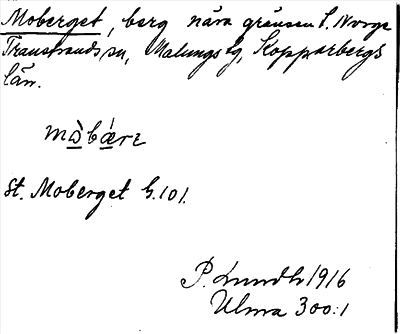 Moberget, berg nära gränsen t. Norge
Transtrands sn, Malungs tg, Kopparbergs
län.
St. Moberget G.101.
P. Lundh 1916
Ulma 300:1